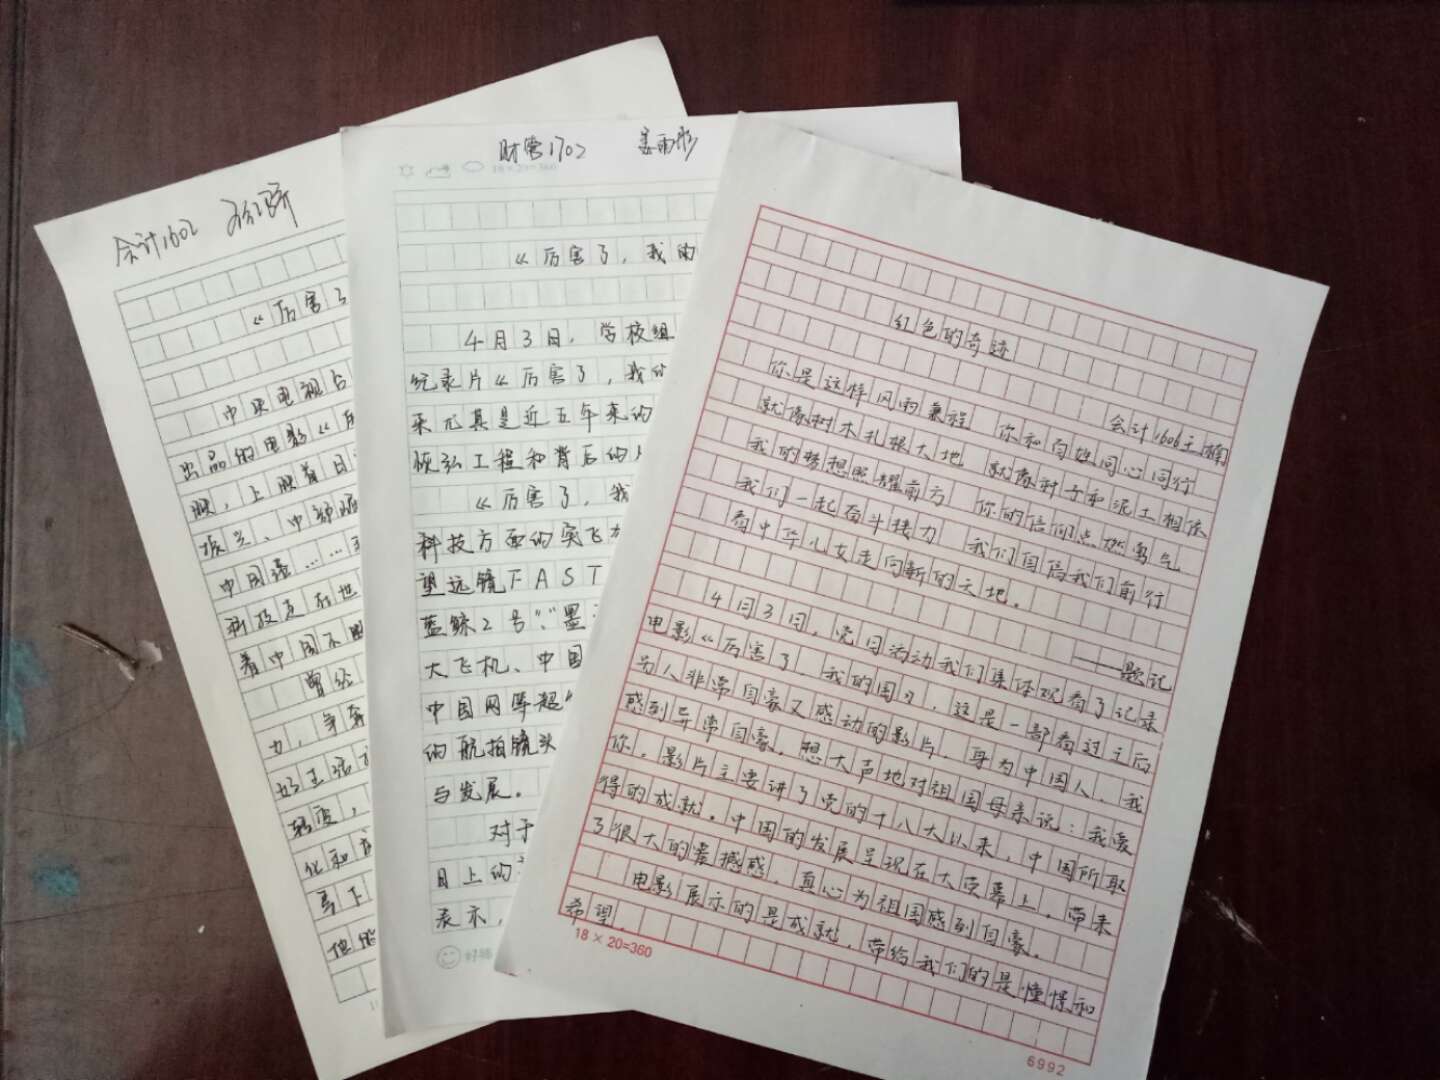 会计1602
《厉害了
中央电视台
出品的电影《厉
中国造……
科技走在世
着中国不
曾经
力，争奔
好主张
轻渡，
化和
寻下
但能
财管1702 姜雨彤
18×20=360
《厉害了，我的
4月3日，学校组
纪录片《厉害了，我的
来尤其是近五年来的
恢弘工程和背后的人
《厉害了，我
科技方面的突飞
望远镜FAST
蓝鲸2号”、“墨
大飞机、中国
中国网等超“
的航拍镜头
与发展。
对于
目上的
表示，
红色的奇迹
会计1606王楠
你是这样风雨兼程 你和百姓同心同行
就像树木扎根大地 就像种子和泥土相依
我的梦想照耀前方 你的信仰点燃勇气
我们一起奋斗接力 我们自信我们前行
看中华儿女走向新的天地。
——题记
4月3日，党日活动我们集体观看了记录
电影《厉害了，我的国》，这是一部看过之后
另人非常自豪又感动的影片，身为中国人，我
感到异常自豪，想大声地对祖国母亲说：我爱
你。影片主要讲了党的十八大以来，中国所取
得的成就。中国的发展呈现在大荧幕上，带来
了很大的震撼感，真心为祖国感到自豪。
电影展示的是成就，带给我们的是憧憬和
希望。
18×20=360
6992